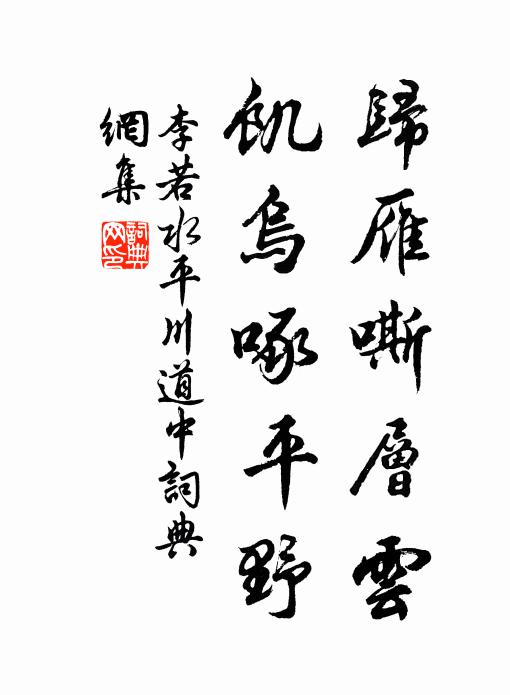 歸雁嘶層雲
飢烏啄平野
李若水平川道中詞典
網集
詞典
网印